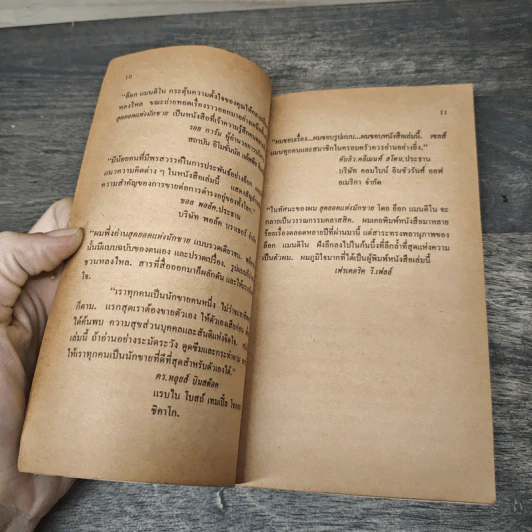 10
"อ็อก แมนดิโน กระตุ้นความตั้งใจของคุณให้
หลงใหล ขณะถ่ายทอดเรื่องราวออกมาอย่าง
สุดยอดแห่งนักขาย เป็นหนังสือที่เร้าความรู้สึก
รอย การ์น ผู้อำนวยการ
สถาบัน อีโมชั่นนัล
"มีน้อยคนที่มีพรสวรรค์ในการประพันธ์อย่าง
แนวความคิดต่าง ๆ ในหนังสือเล่มนี้ แสดง
ความสำคัญของการขายต่อการดำรงอยู่ของทั้งโลก"
ซอล พอล์ค,ประธาน
บริษัท พอล์ค บราเธอร์
"ผมพึ่งอ่านสุดยอดแห่งนักขาย แบบรวดเดียวจบ
นั้นมีแบบฉบับของตนเอง และปราดเปรื่อง
ชวนหลงใหล. สารที่สื่อออกมาก็ผลักดัน และให้
ใจ.
"เราทุกคนเป็นนักขายคนหนึ่ง ไม่ว่าจะ
ก็ตาม. แรกสุดเราต้องขายตัวเอง ให้ตัวเองเสียก่อน
ได้ค้นพบ ความสุขส่วนบุคคลและสันติแห่งจิตใจ.
เล่มนี้ ถ้าอ่านอย่างระมัดระวัง ดูดซึมและกระทำตาม
ให้เราทุกคนเป็นนักขายที่ดีที่สุดสำหรับตัวเองได้"
ดร.หลุยส์ บินสต็อค
แรบไบ โบสถ์ เทมเปิ้ล
ชิคาโก.
11
"ผมชอบเรื่อง...ผมชอบรูปแบบ...ผมชอบหนังสือเล่มนี้. เซลส์
แมนทุกคนและสมาชิกในครอบครัวควรอ่านอย่างยิ่ง."
ดับลิว.คลีเมนท์ สโตน,ประธาน
บริษัท คอมไบน์ อินชัวรันซ์ ออฟ
อเมริกา จำกัด
"ในทัศนะของผม สุดยอดแห่งนักขาย โดย อ็อก แมนดิโน จะ
กลายเป็นวรรณกรรมคลาสสิค. ผมเคยพิมพ์หนังสือมาหลาย
ร้อยเรื่องตลอดหลายปีที่ผ่านมา แต่สาระทรงพลานุภาพของ
อ็อก แมนดิโน ฝังลึกลงไปในก้นบึ้งที่ลึกล้ำที่สุดแห่งความ
เป็นตัวผม. ผมภูมิใจมากที่ได้เป็นผู้พิมพ์หนังสือเล่มนี้
เฟรเดอริค วี.เฟลส์